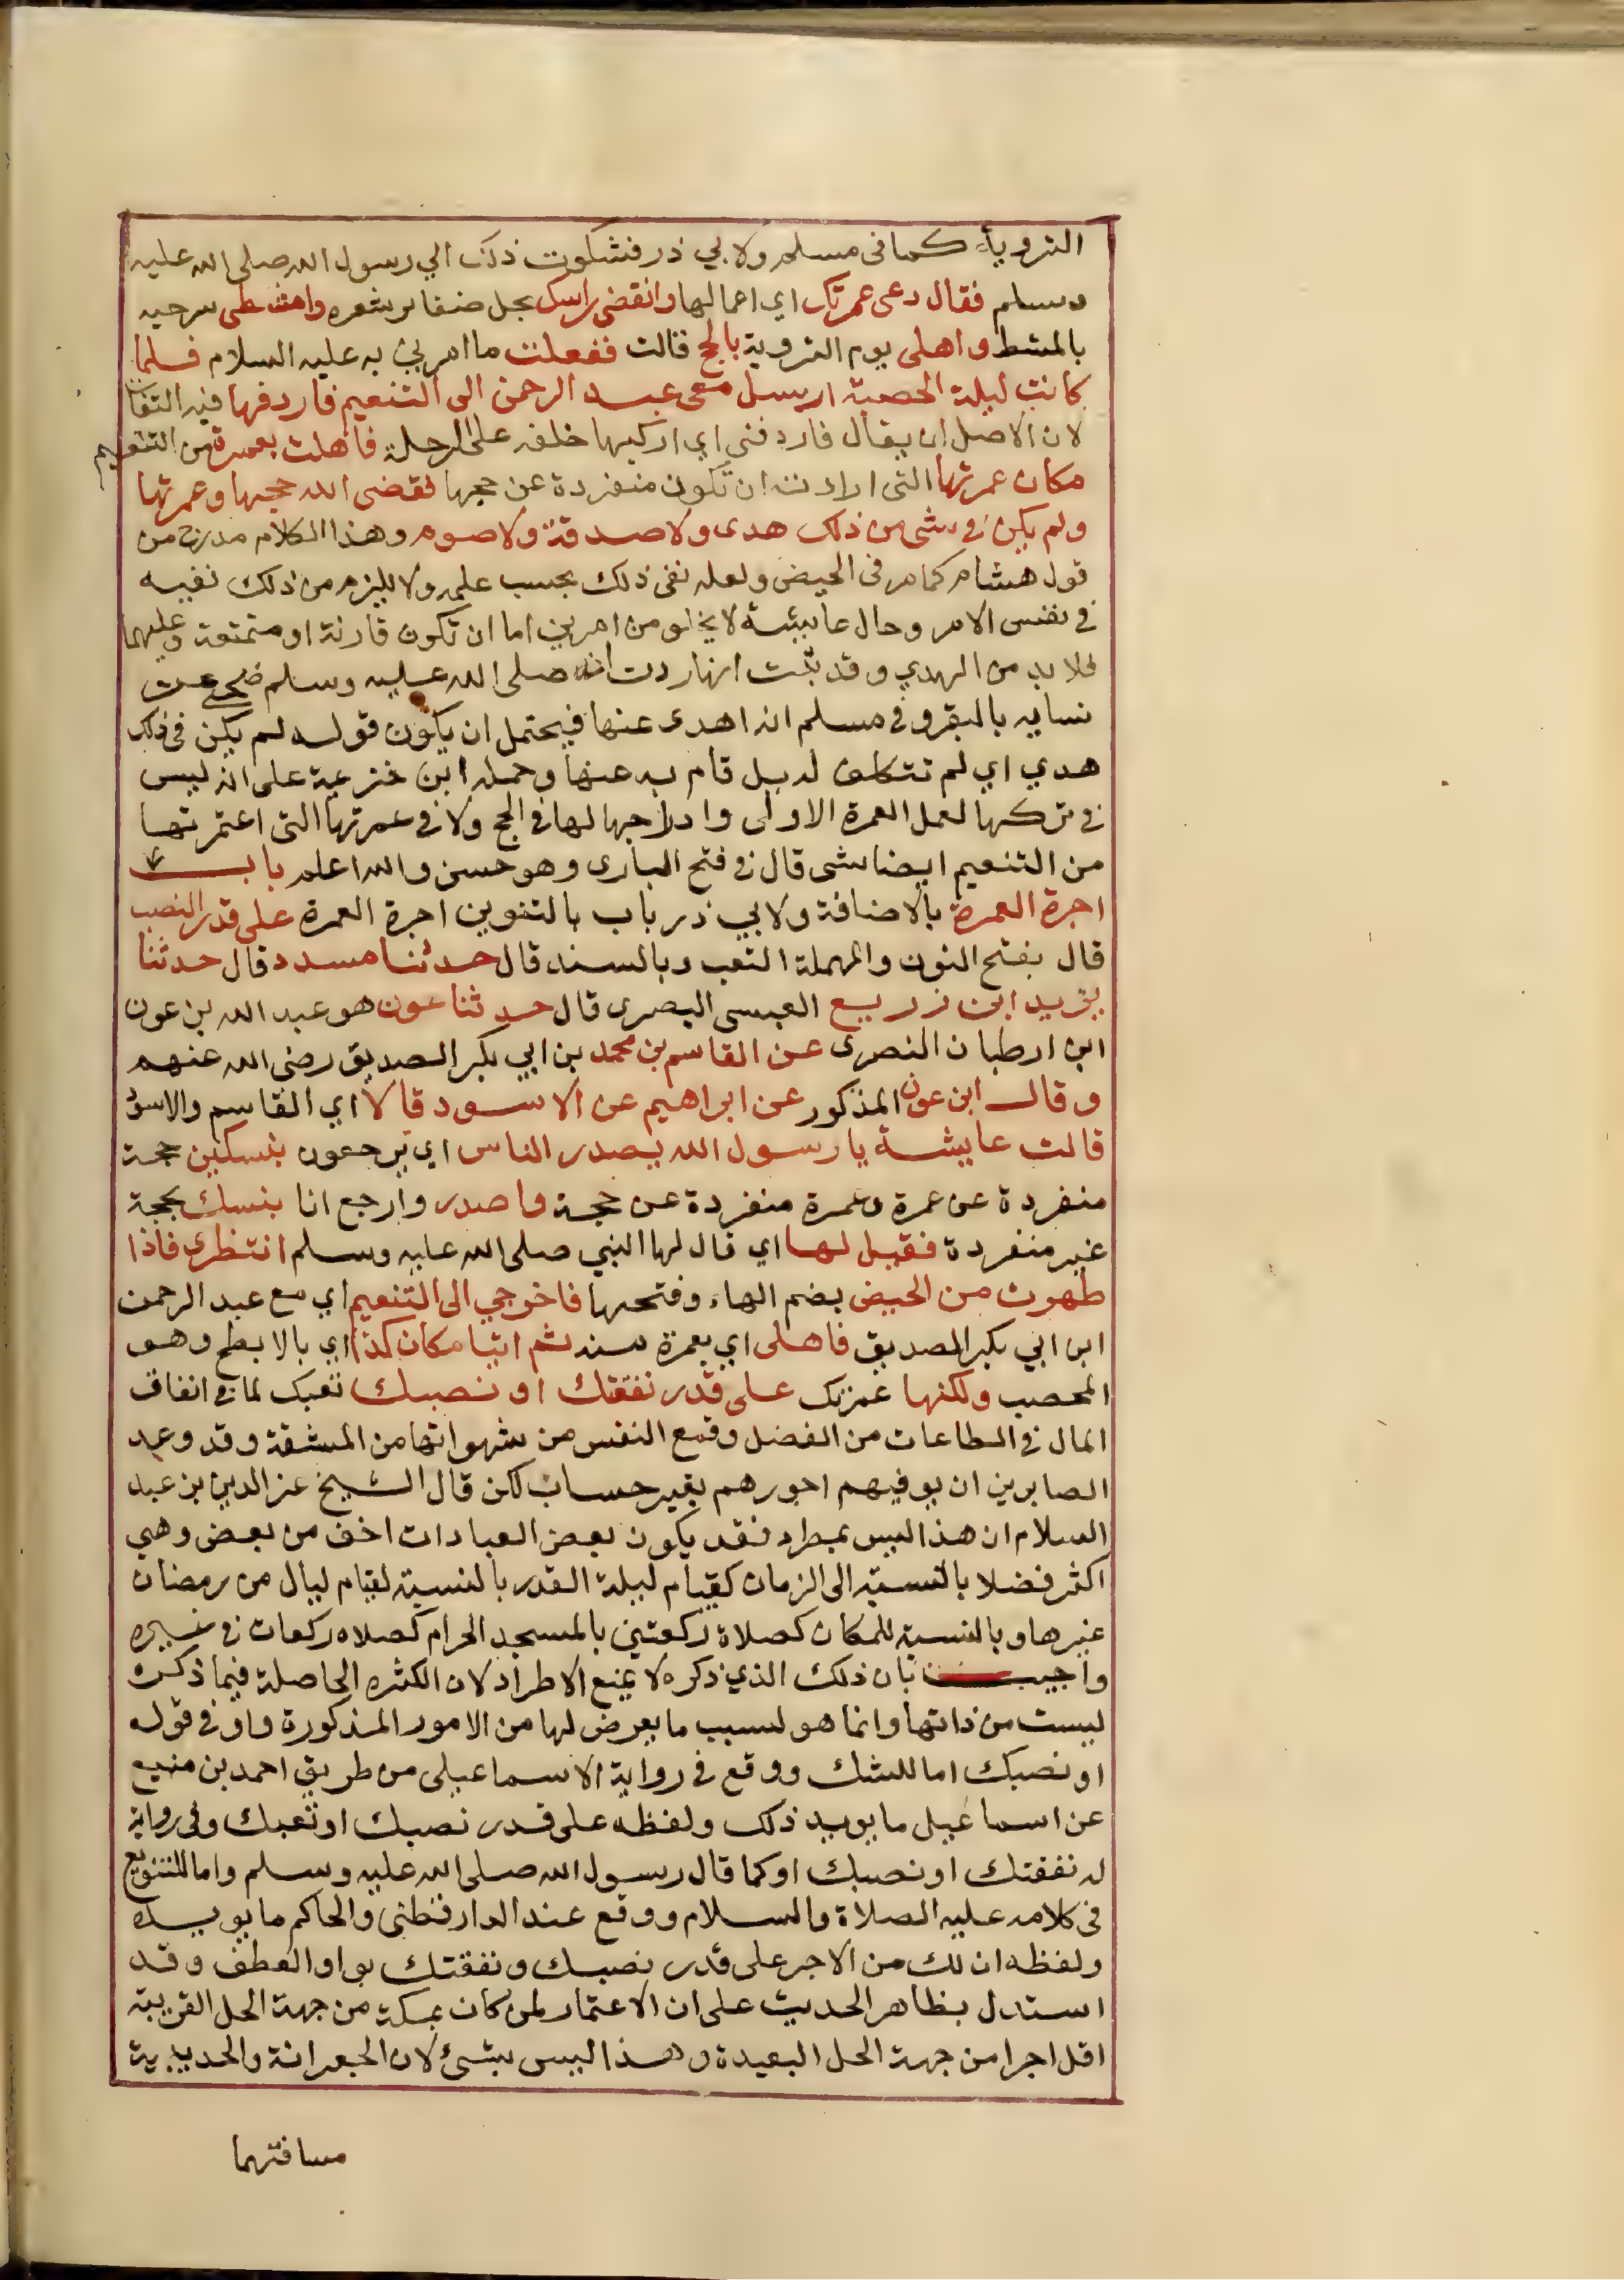 التروية كما فى مسلم ولابي ذر فشكوت ذلك الي رسول الله صلى الله عليه
وسلم فقال دعى عمرتك اي اعمالها وانقضى راسك بحل ضفاير شعره وامتشطى سرحيه
بالمشط واهلى يوم التروية بالحج قالت ففعلت ما امربي به عليه السلام فلما
كانت ليلة الحصبة ارسل معى عبد الرحمن الى التنعيم فاردفها فيه التفات
لان الاصل ان يقال فاردفني اي اركبها خلفه على الرحلة فاهلت بعمرة من التنعيم
مكان عمرتها التى ارادت ان تكون منفردة عن حجها فقضى الله حجها وعمرتها
ولم يكن في شى من ذلك هدى ولا صدقة ولا صوم وهذا الكلام مدرج من
قول هشام كما مر فى الحيض ولعله نفى ذلك بحسب علمه ولا يلزم من ذلك نفيه
في نفس الامر وحال عايشة لا يخلو من امرين اما ان تكون قارنة او متمتعة وعليهما
فلا بد من الهدي وقد ثبت انها ردت انه صلى الله عليه وسلم ضحى عن
نسايه بالبقر وفي مسلم انه اهدى عنها فيحتمل ان يكون قوله لم يكن فى ذلك
هدي اي لم تتكلف له بل قام به عنها وحمله ابن خزيمة على انه ليس
في تركها لعمل العمرة الاولى وادراجها لها في الحج ولا في عمرتها التى اعتمرتها
من التنعيم ايضا شى قال في فتح البارى وهو حسن والله اعلم باب
اجرة العمرة بالاضافة ولابي ذر باب بالتنوين اجرة العمرة على قدر النصب
قال بفتح النون والمهملة التعب وبالسند قال حدثنا مسدد قال حدثنا
يزيد ابن زريع العيسى البصرى قال حدثنا عون هو عبد الله بن عون
ابن ارطبان النصرى عن القاسم بن محمد بن ابي بكر الصديق رضى الله عنهم
وقال ابن عون المذكور عن ابراهيم عن الاسود قالا اي القاسم والاسود
قالت عايشة يا رسول الله يصدر الناس اي يرجعون بنسكين حجة
منفردة عن عمرة وعمرة منفردة عن حجة واصدر وارجع انا بنسك بحجة
غير منفردة فقيل لها اي قال لها النبي صلى الله عليه وسلم انتظرى فاذا
طهرت من الحيض بضم الهاء وفتحها فاخرجي الى التنعيم اي مع عبد الرحمن
ابن ابي بكر الصديق فاهلى اي بعمرة منه ثم اتيا مكان كذا اي بالابطح وهو
المحصب ولكنها عمرتك على قدر نفقتك او نصبك تعبك لما في انفاق
المال في الطاعات من الفضل وقمع النفس من شهواتها من المشقة وقد وعد
الصابرين ان يوفيهم اجورهم بغير حساب لكن قال الشيخ عز الدين بن عبد
السلام ان هذا ليس بمطرد فقد يكون بعض العبادات اخف من بعض وهي
اكثر فضلا بالنسبة الى الزمان كقيام ليلة القدر بالنسبة لقيام ليال من رمضان
غيرها وبالنسبة للمكان كصلاة ركعتين بالمسجد الحرام كصلاه ركعات في غيره
واجيب بان ذلك الذي ذكره لا يمنع الاطراد لان الكثره الحاصلة فيما ذكره
ليست من ذاتها وانما هو لسبب ما يعرض لها من الامور المذكورة واو في قوله
او نصبك اما للشك ووقع في رواية الاسماعيلى من طريق احمد بن منيع
عن اسماعيل ما يويد ذلك ولفظه على قدر نصبك او تعبك وفى رواية
له نفقتك او نصبك او كما قال رسول الله صلى الله عليه وسلم واما للتنويع
فى كلامه عليه الصلاة والسلام ووقع عند الدارقطنى والحاكم ما يويده
ولفظه ان لك من الاجر على قدر نصبك ونفقتك بواو العطف وقد
استدل بظاهر الحديث على ان الاعتمار لمن كان بمكة من جهة الحل القريبة
اقل اجرا من جهة الحل البعيدة وهذا ليس بشئ لان الجعرانة والحديبية
مسافتهما